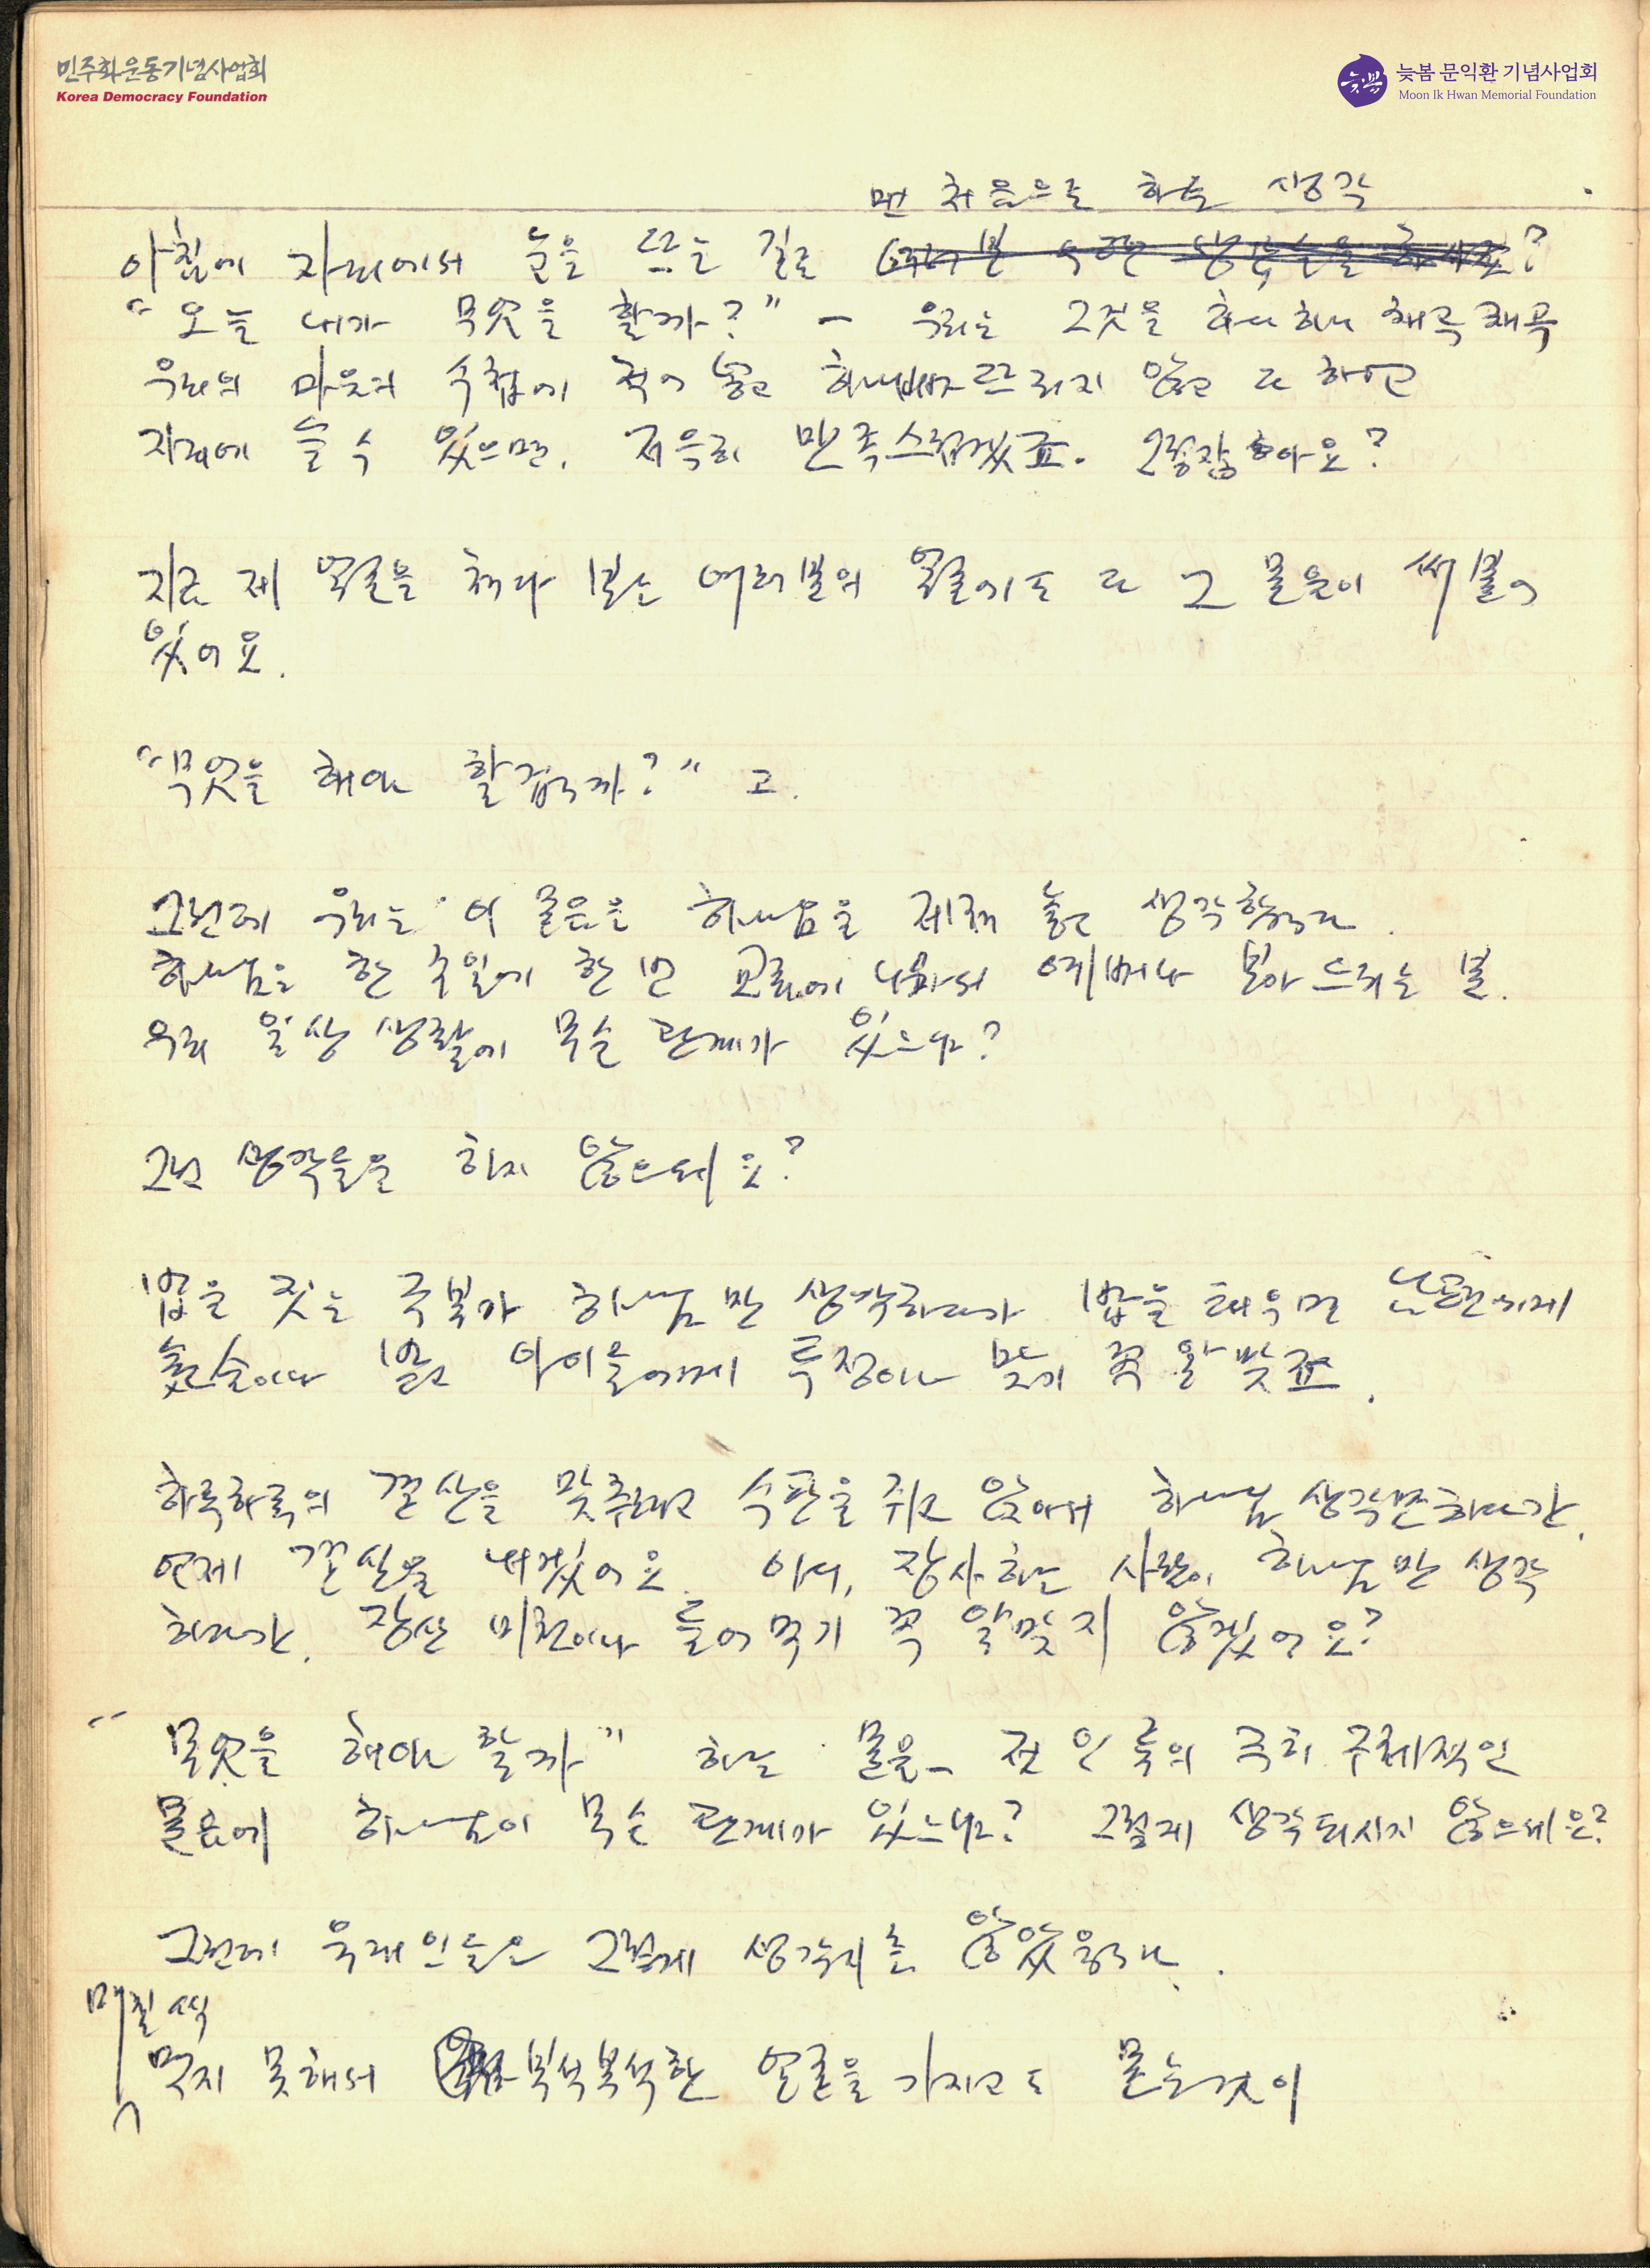 민주화운동기념사업회
Korea Democracy Foundation
늦봄
늦봄 문익환 기념사업회
Moon Ik Hwan Memorial Foundation
맨 처음으로 하는 생각
아침에 자리에서 눈을 뜨는 길로
"오늘 내가 무엇을 할까?" — 우리는 그것을 하나 하나 차곡차곡
우리의 마음의 수첩에 적어 놓고 하나 빠뜨리지 않고 다 하고
자리에 들 수 있으면, 저윽히 만족스럽겠죠. 그렇잖아요?
지금 제 얼굴을 쳐다 보는 여러분의 얼굴에도 다 그 물음이 씌붙어
있어요.
"무엇을 해야 할겁니까?" 고.
그런데 우리는 이 물음을 하나님을 제쳐 놓고 생각합니다.
하나님은 한 주일에 한 번 교회에 나와서 예배나 보아 드리는 분.
우리 일상 생활에 무슨 관계가 있느냐?
그런 생각들을 하지 않으세요?
밥을 짓는 주부가 하나님만 생각하다가 밥을 태우면 남편에게
놓고 아이들에게 투정이나 받기 꼭 알맞죠.
하루하루의 결산을 맞추려고 수판을 쥐고 앉아서 하나님 생각만 하다간,
언제 결산을 내겠어요. 아니, 장사하는 사람이 하나님만 생각
하다간, 장산 미천이나 들어먹기 꼭 알맞지 않겠어요?
"무엇을 해야 할까" 하는 물음— 전 인류의 극히 구체적인
물음에 하나님이 무슨 관계가 있느냐? 그렇게 생각되시지 않으세요?
그런데 유대인들은 그렇게 생각지를 않았습니다.
며칠씩
먹지 못해서 북석북석한 얼굴을 가지고도 묻는 것이